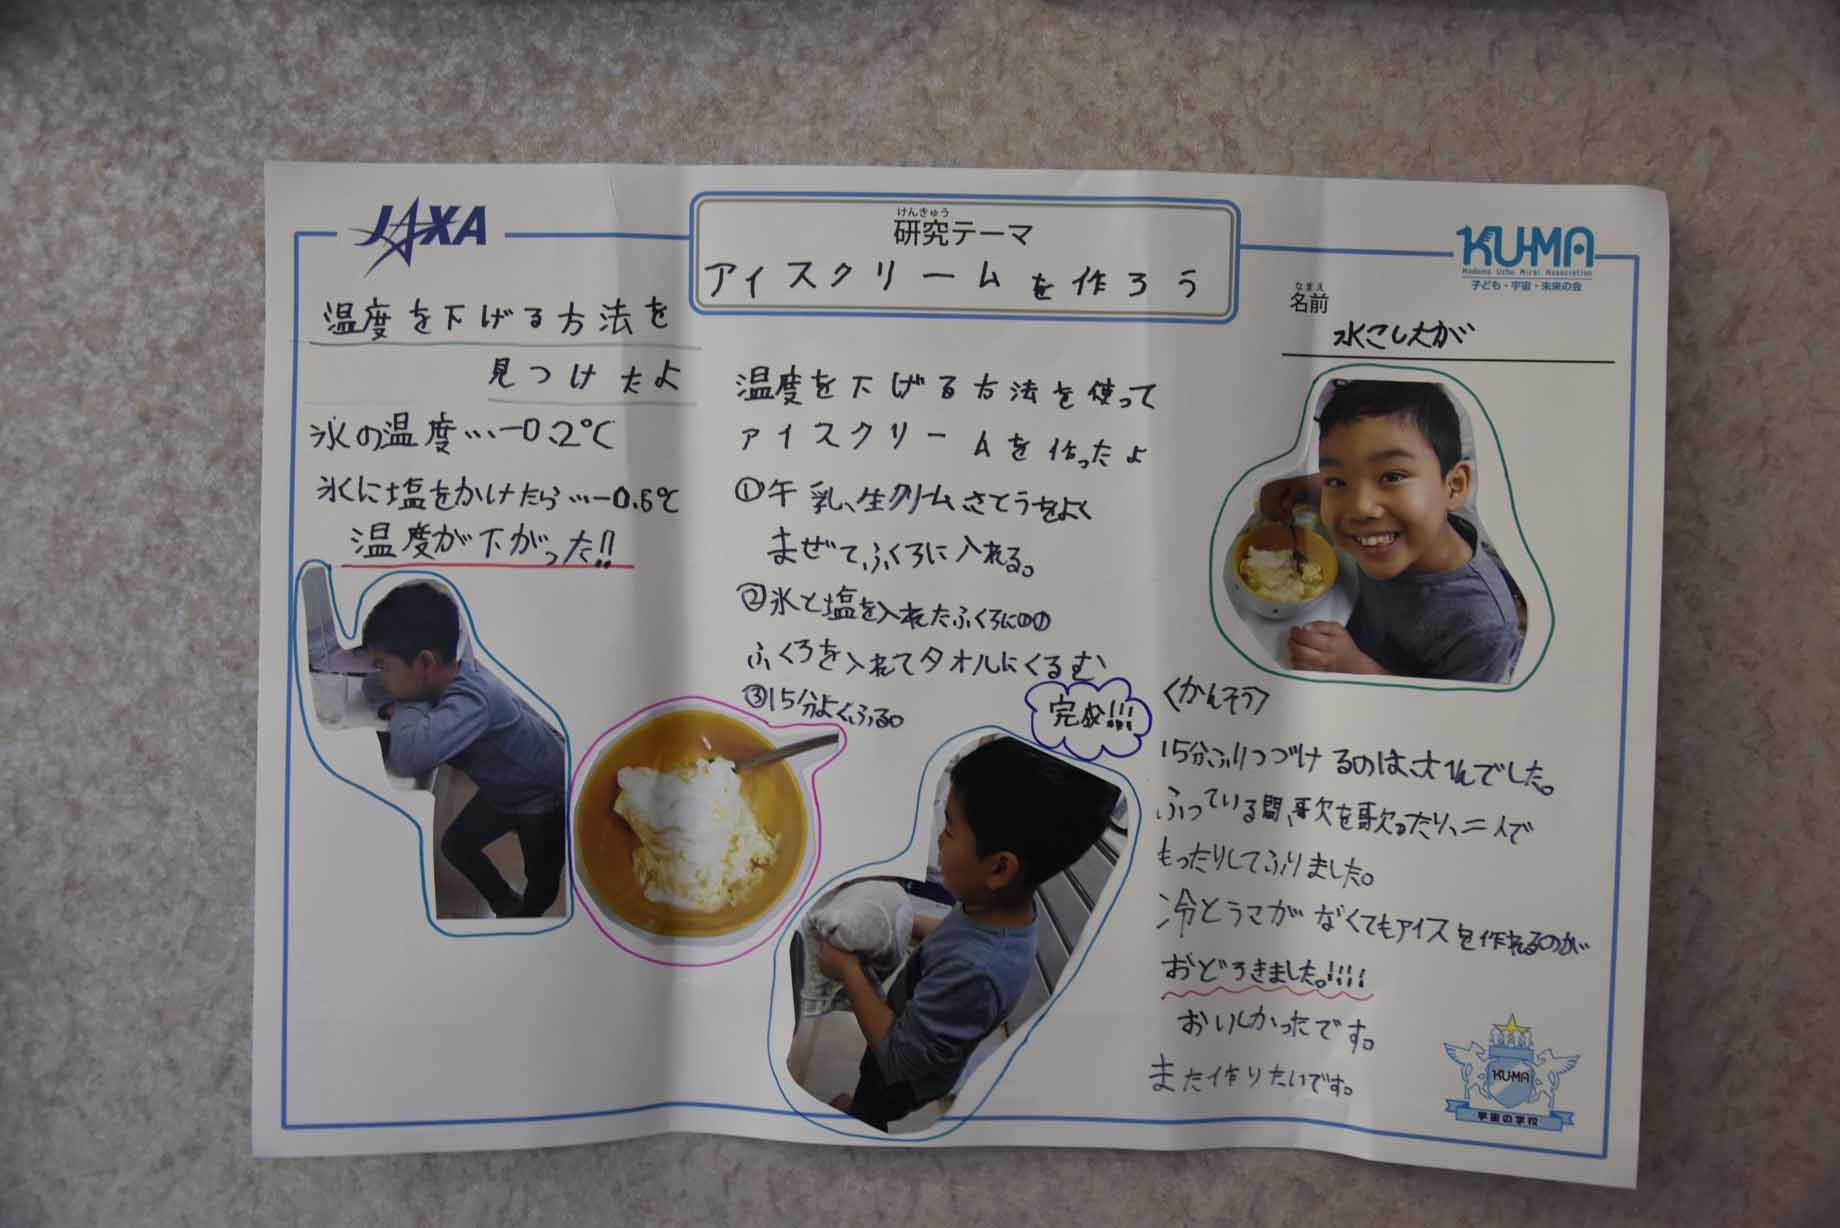 JAXA
けんきゅう
研究テーマ
アイスクリームを作ろう
KU-MA
Kodomo Uchu Mirai Association
子ども・宇宙・未来の会
なまえ
名前
温度を下げる方法を
見つけたよ
氷の温度…-0.2℃
氷に塩をかけたら…-0.6℃
温度が下がった!!
温度を下げる方法を使って
アイスクリームを作ったよ
①牛乳、生クリーム、さとうをよく
まぜて、ふくろに入れる。
②氷と塩を入れたふくろに①の
ふくろを入れてタオルにくるむ
③15分よくふる。
完成!!!
〈かんそう〉
15分ふりつづけるのは、大へんでした。
ふっている間、歌を歌ったり、二人で
もったりしてふりました。
冷とうこがなくてもアイスを作れるのが
おどろきました。!!!!
おいしかったです。
また作りたいです。
KU-MA
宇宙の学校